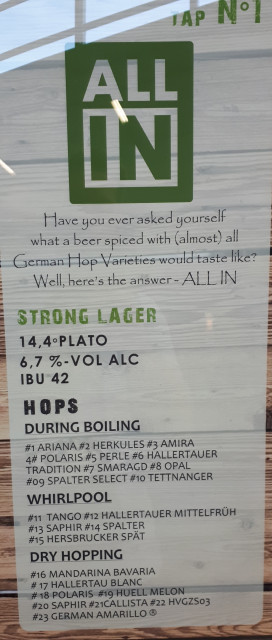 TAP Nº1
ALL
IN
Have you ever asked yourself
what a beer spiced with (almost) all
German Hop Varieties would taste like?
Well, here's the answer - ALL IN
STRONG LAGER
14,4°PLATO
6,7 %-VOL ALC
IBU 42
HOPS
DURING BOILING
#1 ARIANA #2 HERKULES #3 AMIRA
4# POLARIS #5 PERLE #6 HALLERTAUER
TRADITION #7 SMARAGD #8 OPAL
#09 SPALTER SELECT #10 TETTNANGER
WHIRLPOOL
#11 TANGO #12 HALLERTAUER MITTELFRÜH
#13 SAPHIR #14 SPALTER
#15 HERSBRUCKER SPÄT
DRY HOPPING
#16 MANDARINA BAVARIA
# 17 HALLERTAU BLANC
# 18 POLARIS #19 HUELL MELON
#20 SAPHIR #21CALLISTA #22 HVGZS03
#23 GERMAN AMARILLO ®